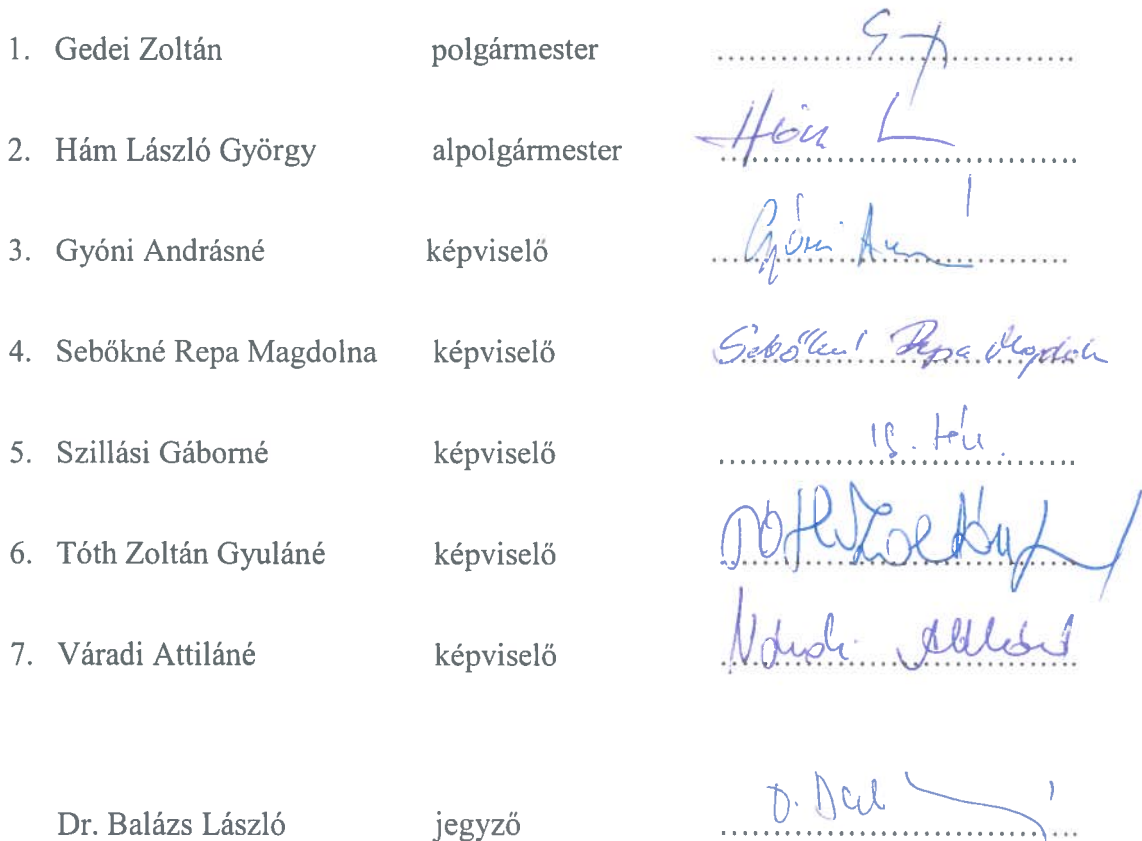 1. Gedei Zoltán polgármester
2. Hám László György alpolgármester Hám L
3. Gyóni Andrásné képviselő Gyóni
4. Sebőkné Repa Magdolna képviselő Sebőkné Repa Magdolna
5. Szillási Gáborné képviselő ig. táv.
6. Tóth Zoltán Gyuláné képviselő Tóth Zoltán
7. Váradi Attiláné képviselő Váradi Attiláné
Dr. Balázs László jegyző